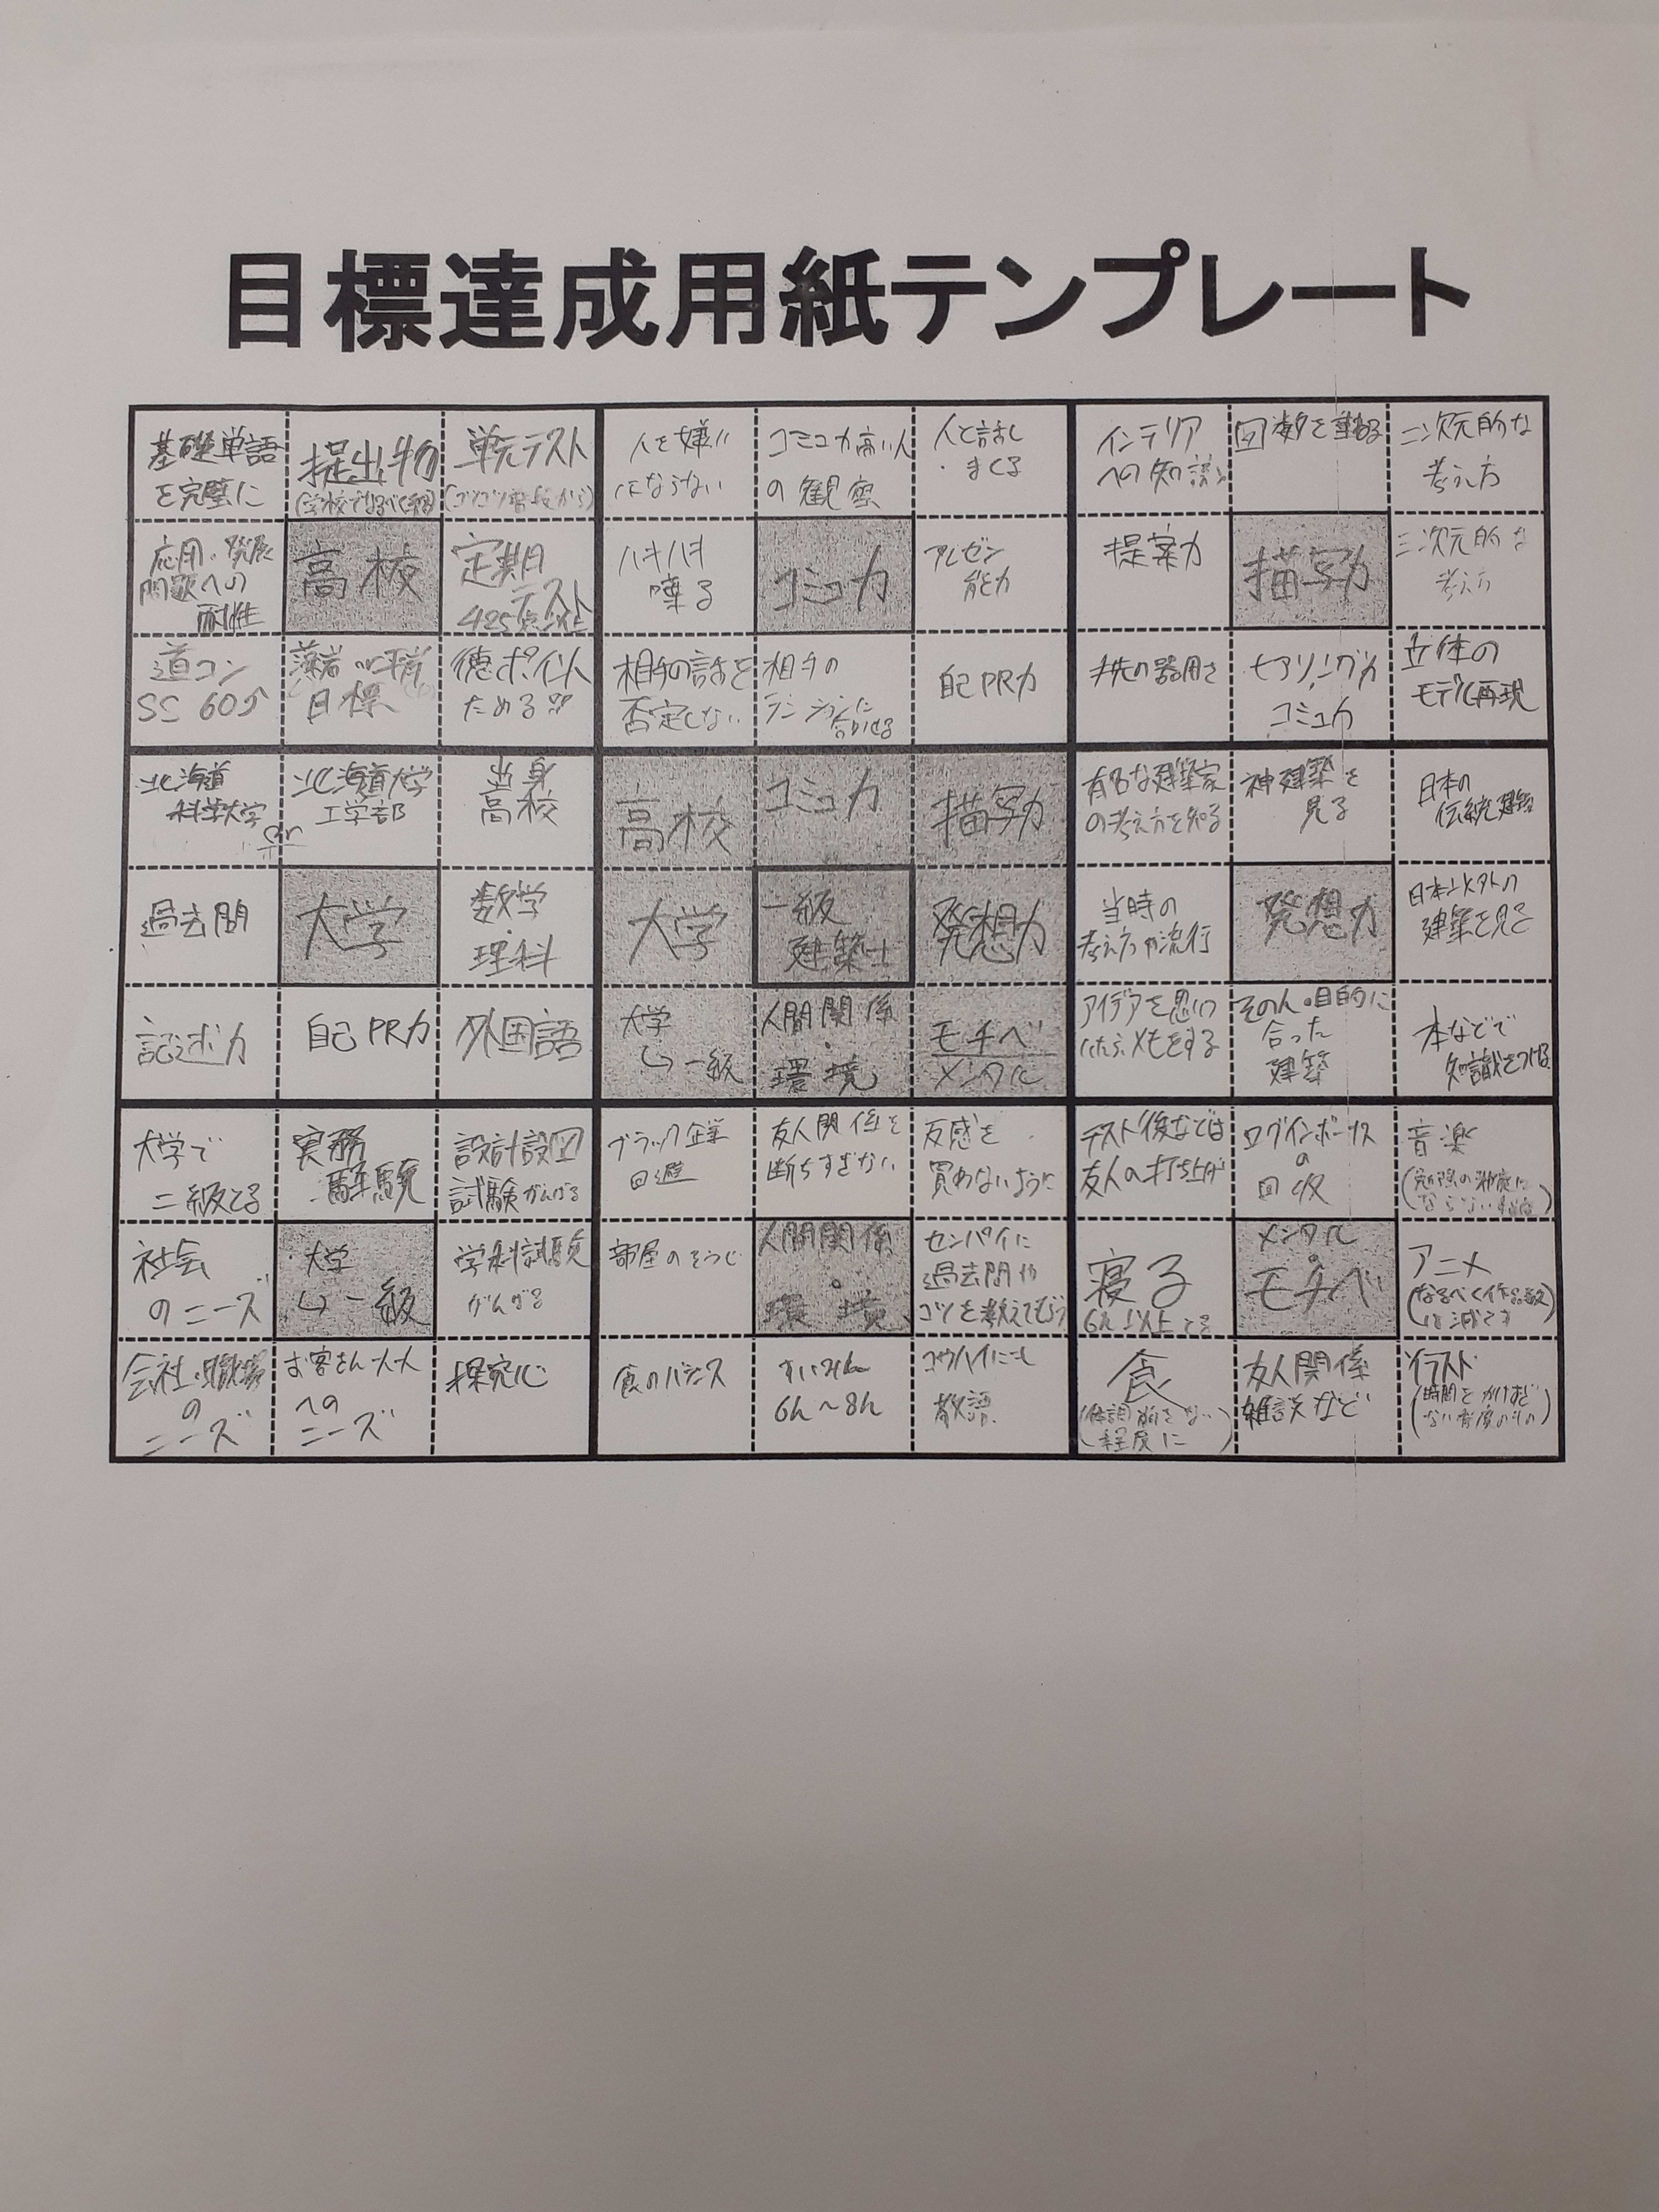 目標達成用紙テンプレート
基礎単語
を完璧に
提出物
単元テスト
人を嫌いにならない
コミュカ高い人
の観察
人と話し
まくる
インテリア
への知識
回数を重ねる
二次元的な
考え方
応用・発展
問題への
耐性
高校
定期
テスト
425点以上
ハキハキ
喋る
コミュカ
プレゼン
能力
提案力
描写力
三次元的な
考え方
道コン
SS 60
目標
徳ポイント
ためる
相手の話を
否定しない
相手の
テンションに
合わせる
自己PR力
手先の器用さ
ヒアリング力
コミュ力
立体の
モデル再現
北海道
科学大学
or
北海道大学
工学部
出身
高校
高校
コミュカ
描写力
有名な建築家
の考え方を知る
神建築を
見る
日本の
伝統建築
過去問
大学
数学
理科
大学
一級
建築士
発想力
当時の
考え方や流行
発想力
日本以外の
建築を見る
記述力
自己PR力
外国語
大学
↳一級
人間関係
・
環境
モチベ
メンタル
アイデアを思い
ついたらメモをする
その人・目的に
合った
建築
本などで
知識をつける
大学で
二級とる
実務
経験
設計製図
試験がんばる
ブラック企業
回避
友人関係を
断ちすぎない
反感を
買わないように
テスト後などは
友人の打ち上げ
ログインボーナス
の
回収
音楽
社会
のニーズ
大学
↳一級
学科試験
がんばる
部屋のそうじ
人間関係
・
環境
センパイに
過去問や
コツを教えてもらう
寝る
6h以上
メンタル
・
モチベ
アニメ
(なるべく作品数
は減らす)
会社・職場
の
ニーズ
お客さん
への
ニーズ
探究心
食のバランス
すいみん
6h～8h
コウハイにも
敬語
食
友人関係
雑談など
イラスト